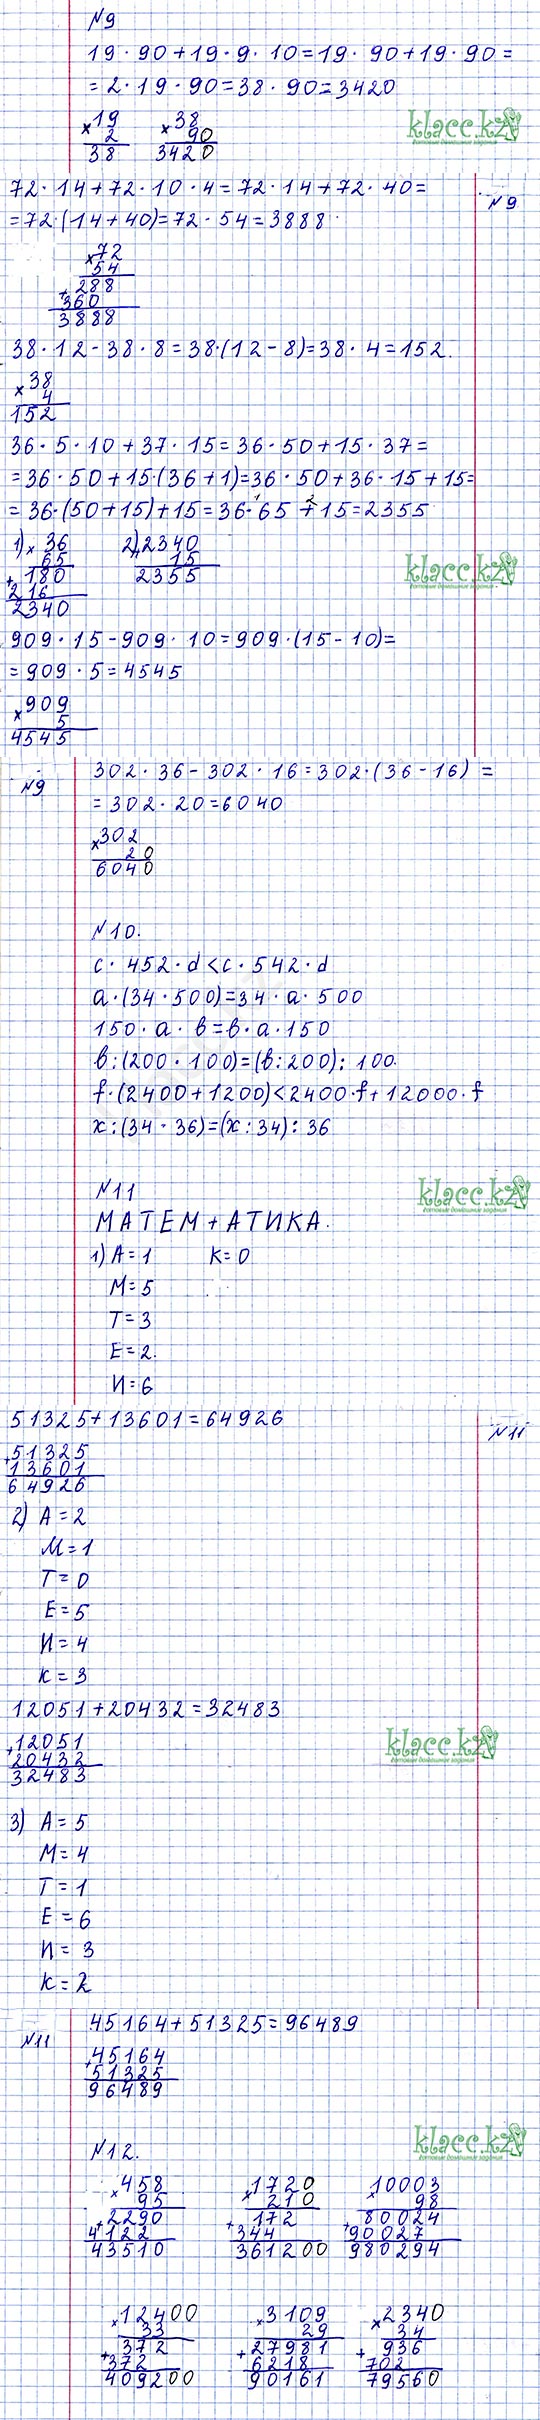 №9
19 · 90 + 19 · 9 · 10 = 19 · 90 + 19 · 90 =
= 2 · 19 · 90 = 38 · 90 = 3420
× 19 × 38
2 90
38 3420
klacc.kz
готовые домашние задания
72 · 14 + 72 · 10 · 4 = 72 · 14 + 72 · 40 =
№9
= 72 · (14 + 40) = 72 · 54 = 3888
× 72
54
+ 288
360
3888
38 · 12 - 38 · 8 = 38 · (12 - 8) = 38 · 4 = 152.
× 38
4
152
36 · 5 · 10 + 37 · 15 = 36 · 50 + 15 · 37 =
= 36 · 50 + 15 · (36 + 1) = 36 · 50 + 36 · 15 + 15 =
= 36 · (50 + 15) + 15 = 36 ·¹ 65 +² 15 = 2355
1) × 36 2) + 2340
65 15
+ 180 2355
216
2340
klacc.kz
готовые домашние задания
909 · 15 - 909 · 10 = 909 · (15 - 10) =
= 909 · 5 = 4545
× 909
5
4545
№9
302 · 36 - 302 · 16 = 302 · (36 - 16) =
= 302 · 20 = 6040
× 302
20
6040
№10.
c · 452 · d < c · 542 · d
a · (34 · 500) = 34 · a · 500
150 · a · в = в · a · 150
в : (200 · 100) = (в : 200) : 100.
f · (2400 + 1200) < 2400 · f + 12000 · f
x : (34 · 36) = (x : 34) : 36
№11
klacc.kz
готовые домашние задания
МАТЕМ + АТИКА.
1) А = 1 К = 0
М = 5
Т = 3
Е = 2.
И = 6
51325 + 13601 = 64926
№11
+ 51325
13601
64926
2) А = 2
М = 1
Т = 0
Е = 5
И = 4
К = 3
12051 + 20432 = 32483
+ 12051
20432
32483
klacc.kz
готовые домашние задания
3) А = 5
М = 4
Т = 1
Е = 6
И = 3
К = 2
№11
45164 + 51325 = 96489
+ 45164
51325
96489
№12.
klacc.kz
готовые домашние задания
× 458 × 1720 × 10003
95 210 98
+ 2290 + 172 + 80024
4122 344 90027
43510 361200 980294
× 12400 × 3109 × 2340
33 29 34
+ 372 + 27981 + 936
372 6218 702
409200 90161 79560